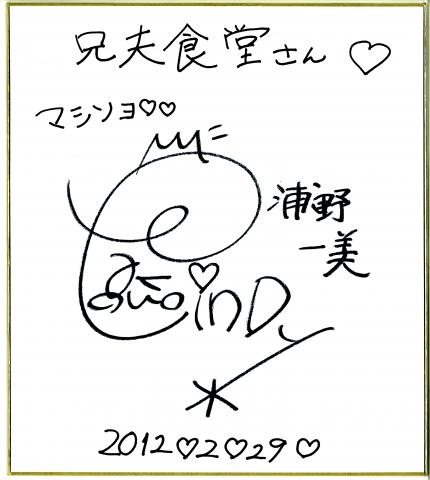 兄夫食堂さん♡
マシソヨ♡♡
浦野
一美
CinDy
2012♡2♡29♡